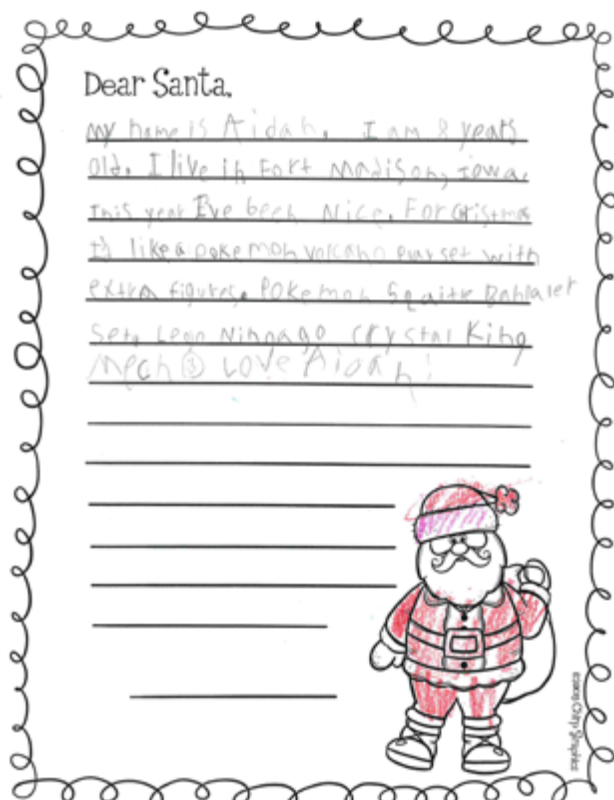 Dear Santa,
My name is Aidan. I am 8 years
old. I live in Fort Madison, Iowa.
This year I've been Nice. For Cristmas
I'd like a pokemon volcano playset with
extra figures, Pokemon
Set, Lego Ninpago crystal King
Mech Love Aidan!